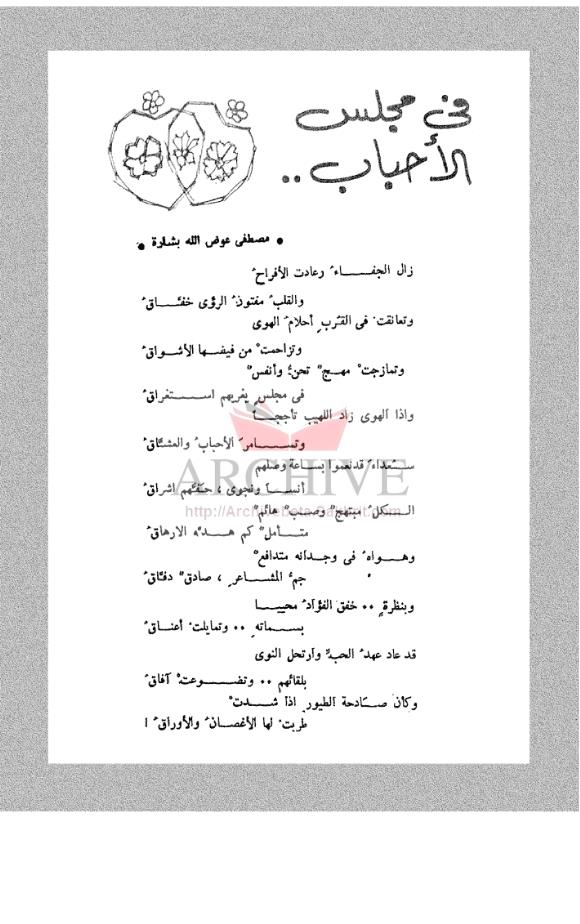 في مجلس
الأحباب ..
● مصطفى عوض الله بشارة ●
زال الجفـــاءُ وعادت الأفراحُ
والقلبُ مفتونُ الرؤى خفّـــاقُ
وتعانقتْ في القربِ أحلامُ الهوى
وتزاحمتْ من فيضهـا الأشـواقُ
وتمازجتْ مهـجٌ تحنُّ وأنفسٌ
في مجلسٍ يغريهم استـــغراقُ
واذا الهوى زاد اللهيب تأججـــاً
وتســـامرُ الأحبابُ والعشّاقُ
سـعداءُ قد نعموا بساعة وصلهم
أنســـاً ونجوى ، حفّهم اشراقُ
الـــكلُّ مبتهجٌ وصـبٌّ هائمٌ
متـــأملٌ كم هـــدّه الارهاقُ
وهـــواهُ في وجـدانه متدافعٌ
جمُّ المشـاعرِ ، صادقٌ دفّاقُ
وبنظرةٍ .. خفق الفؤادُ محييـــا
بســـماتهِ .. وتمايلتْ أعنـاقُ
قد عاد عهدُ الحبِّ وارتحل النوى
بلقائهم .. وتضـــوعتْ آفاقُ
وكأن صـادحة الطيورِ اذا شـــدتْ
طربتْ لها الأغصـانُ والأوراقُ !
ARCHIVE
http://Archivebeta.Sakhrit.com